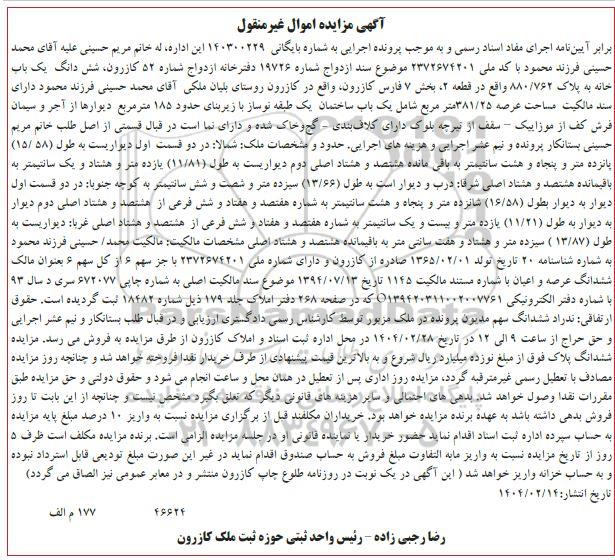 آگهی مزایده اموال غیرمنقول
برابر آیین‌نامه اجرای مفاد اسناد رسمی و به موجب پرونده اجرایی به شماره بایگانی ۱۴۰۳۰۰۲۲۹ این اداره، له خانم مریم حسینی علیه آقای محمد
حسینی فرزند محمود با کد ملی ۲۳۷۲۶۷۴۲۰۱ موضوع سند ازدواج شماره ۱۹۷۲۶ دفترخانه ازدواج شماره ۵۲ کازرون، شش دانگ یک باب
خانه به پلاک ۸۸۰/۷۶۲ واقع در قطعه ۲، بخش ۷ فارس کازرون، واقع در کازرون روستای بلیان ملکی آقای محمد حسینی فرزند محمود دارای
سند مالکیت مساحت عرصه ۳۸۱/۲۵متر مربع شامل یک باب ساختمان یک طبقه نوساز با زیربنای حدود ۱۸۵ مترمربع دیوارها از آجر و سیمان
فرش کف از موزاییک – سقف از تیرچه بلوک دارای کلاف‌بندی – گچ‌وخاک شده و دارای نما است در قبال قسمتی از اصل طلب خانم مریم
حسینی بستانکار پرونده و نیم عشر اجرایی و هزینه های اجرایی. حدود و مشخصات ملک: شمالا: در دو قسمت اول دیواریست به طول (۱۵/۵۸)
پانزده متر و پنجاه و هشت سانتیمتر به باقی مانده هشتصد و هشتاد اصلی دوم دیواریست به طول (۱۱/۸۱) یازده متر و هشتاد و یک سانتیمتر به
باقیمانده هشتصد و هشتاد اصلی شرقا: درب و دیوار است به طول (۱۳/۶۶) سیزده متر و شصت و شش سانتیمتر به کوچه جنوبا: در دو قسمت اول
دیوار به دیوار بطول (۱۶/۵۸) شانزده متر و پنجاه و هشت سانتیمتر به شماره هفتصد و هفتاد و شش فرعی از هشتصد و هشتاد اصلی دوم دیوار
به دیوار به طول (۱۱/۲۱) یازده متر و بیست و یک سانتیمتر به شماره هفتصد و هفتاد و شش فرعی از هشتصد و هشتاد اصلی غربا: دیواریست به
طول (۱۳/۸۷) سیزده متر و هشتاد و هفت سانتی متر به باقیمانده هشتصد و هشتاد اصلی مشخصات مالکیت: مالکیت محمد/ حسینی فرزند محمود
به شماره شناسنامه ۲۰ تاریخ تولد ۱۳۶۵/۰۲/۰۱ صادره از کازرون و دارای شماره ملی ۲۳۷۲۶۷۴۲۰۱ با جز سهم ۶ از کل سهم ۶ بعنوان مالک
ششدانگ عرصه و اعیان با شماره مستند مالکیت ۱۱۴۵ تاریخ ۱۳۹۴/۰۷/۱۳ موضوع سند مالکیت اصلی به شماره چاپی ۶۷۲۰۷۷ سری د سال ۹۳
با شماره دفتر الکترونیکی ۱۳۹۴۲۰۳۱۱۰۰۲۰۰۷۷۶۱ که در صفحه ۲۶۸ دفتر املاک جلد ۱۷۹ ذیل شماره ۱۸۴۸۲ ثبت گردیده است. حقوق
ارتفاقی: ندراد ششدانگ سهم مدیون پرونده در ملک مزبور توسط کارشناس رسمی دادگستری ارزیابی و در قبال طلب بستانکار و نیم عشر اجرایی
و حق حراج از ساعت ۹ الی ۱۲ در تاریخ ۱۴۰۴/۰۲/۲۸ در محل اداره ثبت اسناد و املاک کازرون از طرق مزایده به فروش می رسد. مزایده
ششدانگ پلاک فوق از مبلغ نوزده میلیارد ریال شروع و به بالاترین قیمت پیشنهادی از طرف خریدار نقدا فروخته خواهد شد و چنانچه روز مزایده
مصادف با تعطیل رسمی غیرمترقبه گردد، مزایده روز اداری پس از تعطیل در همان محل و ساعت انجام می شود و حقوق دولتی و حق مزایده طبق
مقررات نقدا وصول خواهد شد. بدهی های احتمالی و سایر هزینه های قانونی دیگر که تعلق بگیرد مشخص نیست و چنانچه از این بابت تا روز
فروش بدهی داشته باشد به عهده برنده مزایده خواهد بود. خریداران مکلفند قبل از برگزاری مزایده نسبت به واریز ۱۰ درصد مبلغ پایه مزایده
به حساب سپرده اداره ثبت اسناد اقدام نماید حضور خریدار یا نماینده قانونی او در جلسه مزایده الزامی است. برنده مزایده مکلف است ظرف ۵
روز از تاریخ مزایده نسبت به واریز مابه التفاوت مبلغ فروش به حساب صندوق اقدام نماید در غیر این صورت مبلغ تودیعی قابل استرداد نبوده
و به حساب خزانه واریز خواهد شد ( این آگهی در یک نوبت در روزنامه طلوع چاپ کازرون منتشر و در معابر عمومی نیز الصاق می گردد)
تاریخ انتشار:۱۴۰۴/۰۲/۱۴
۴۶۶۲۴ ۱۷۷ م الف
رضا رجبی زاده – رئیس واحد ثبتی حوزه ثبت ملک کازرون